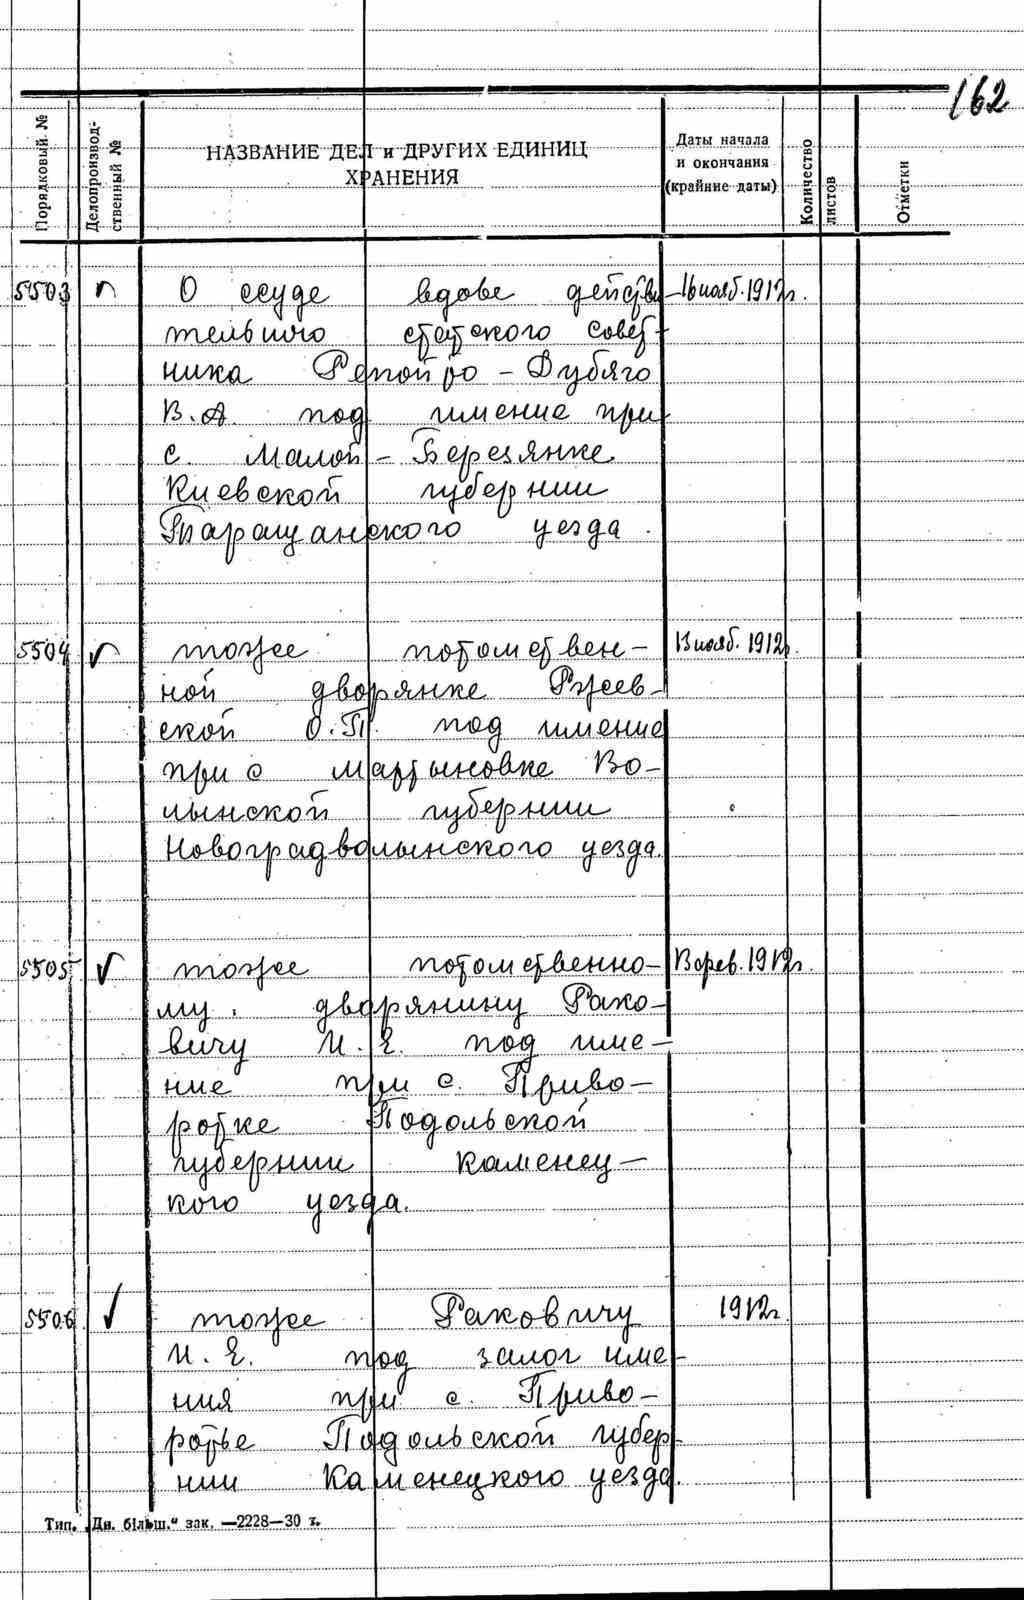 162
Порядковый №
Делопроизвод-
ственный №
НАЗВАНИЕ ДЕЛ и ДРУГИХ ЕДИНИЦ
ХРАНЕНИЯ
Даты начала
и окончания
(крайние даты)
Количество
листов
Отметки
5503 О ссуде вдове действи- 16 нояб. 1912г.
тельного статского совет-
ника Репойто-Дубяго
В.А. под имение при
с. Малой-Березянке
Киевской губернии
Таращанского уезда.
5504 тоже потомствен- 13 нояб. 1912г.
ной дворянке Ржев-
ской О.П. под имение
при с Мартыновке Во-
лынской губернии
Новоградволынского уезда.
5505 тоже потомственно- 13 фев. 1912г.
му дворянину Рако-
вичу И.Е. под име-
ние при с. Приво-
ротке Подольской
губернии Каменец-
кого уезда.
5506 тоже Раковичу 1912г.
И.Е. под залог име-
ния при с. Приво-
ротье Подольской губер
нии Каменецкого уезда.
Тип. „Дн. більш." зак. —2228—30 т.